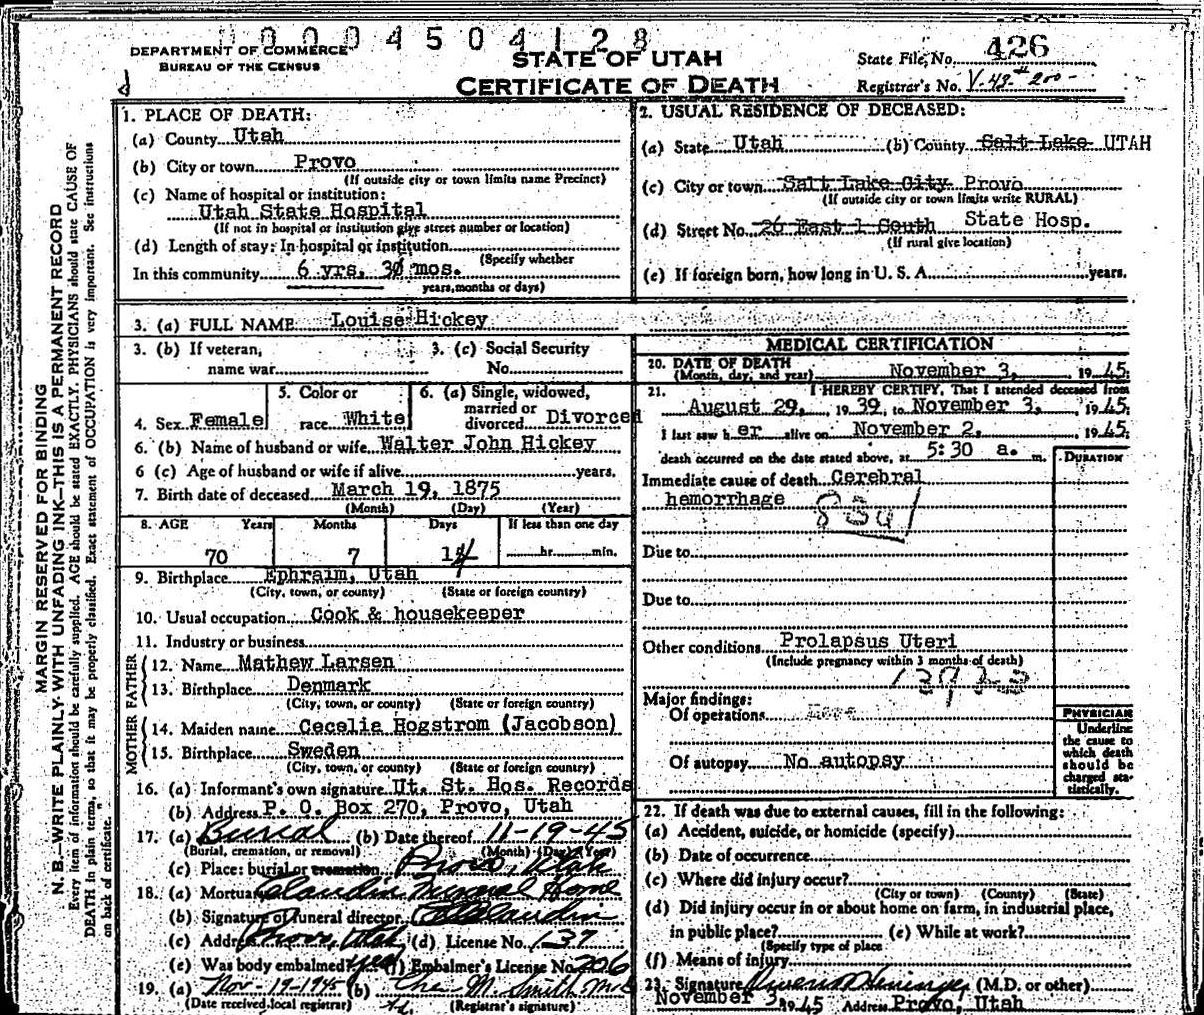 00004504128
DEPARTMENT OF COMMERCE
BUREAU OF THE CENSUS
STATE OF UTAH
CERTIFICATE OF DEATH
State File No. 426
Registrar's No. V-43-#200-
MARGIN RESERVED FOR BINDING
N. B.—WRITE PLAINLY WITH UNFADING INK—THIS IS A PERMANENT RECORD
Every item of information should be carefully supplied. AGE should be stated EXACTLY. PHYSICIANS should state CAUSE OF
DEATH in plain terms, so that it may be properly classified. Exact statement of OCCUPATION is very important. See instructions
on back of certificate.
1. PLACE OF DEATH:
(a) County Utah
(b) City or town Provo
(If outside city or town limits name Precinct)
(c) Name of hospital or institution:
Utah State Hospital
(If not in hospital or institution give street number or location)
(d) Length of stay: In hospital or institution
(Specify whether
In this community 6 yrs, 3 mos.
years, months or days)
2. USUAL RESIDENCE OF DECEASED:
(a) State Utah (b) County Salt Lake UTAH
(c) City or town Salt Lake City Provo
(If outside city or town limits write RURAL)
(d) Street No. 26 East 1 South State Hosp.
(If rural give location)
(e) If foreign born, how long in U. S. A. years.
3. (a) FULL NAME Louise Hickey
3. (b) If veteran, 3. (c) Social Security
name war No.
4. Sex Female 5. Color or race White 6. (a) Single, widowed, married or divorced Divorced
6. (b) Name of husband or wife Walter John Hickey
6 (c) Age of husband or wife if alive years.
7. Birth date of deceased March 19, 1875
(Month) (Day) (Year)
8. AGE Years Months Days If less than one day
70 7 14 hr. min.
9. Birthplace Ephraim, Utah
(City, town, or county) (State or foreign country)
10. Usual occupation Cook & housekeeper
11. Industry or business
FATHER
12. Name Mathew Larsen
13. Birthplace Denmark
(City, town, or county) (State or foreign country)
MOTHER
14. Maiden name Cecelia Hogstrom (Jacobson)
15. Birthplace Sweden
(City, town, or county) (State or foreign country)
16. (a) Informant's own signature Ut. St. Hos. Records
(b) Address P. O. Box 270, Provo, Utah
17. (a) Burial (b) Date thereof 11-19-45
(Burial, cremation, or removal) (Month) (Day) (Year)
(c) Place: burial or cremation Provo, Utah
18. (a) Mortuary Claudin Funeral Home
(b) Signature of funeral director Claudin
(c) Address Provo, Utah (d) License No. 137
(e) Was body embalmed? yes (f) Embalmer's License No. 206
19. (a) Nov-19-1945 (b) Smith M.D.
(Date received local registrar) (Registrar's signature)
MEDICAL CERTIFICATION
20. DATE OF DEATH
(Month, day, and year) November 3, 1945
21. I HEREBY CERTIFY, That I attended deceased from
August 29, 1939, to November 3, 1945;
I last saw her alive on November 2, 1945;
death occurred on the date stated above, at 5:30 a. m.
DURATION
Immediate cause of death Cerebral
hemorrhage
Due to
Due to
Other conditions Prolapsus Uteri
(Include pregnancy within 3 months of death)
Major findings:
Of operations
Of autopsy No autopsy
PHYSICIAN
Underline
the cause to
which death
should be
charged sta-
tistically.
22. If death was due to external causes, fill in the following:
(a) Accident, suicide, or homicide (specify)
(b) Date of occurrence
(c) Where did injury occur?
(City or town) (County) (State)
(d) Did injury occur in or about home on farm, in industrial place,
in public place? (e) While at work?
(Specify type of place
(f) Means of injury
23. Signature (M.D. or other)
November 3, 1945 Address Provo, Utah